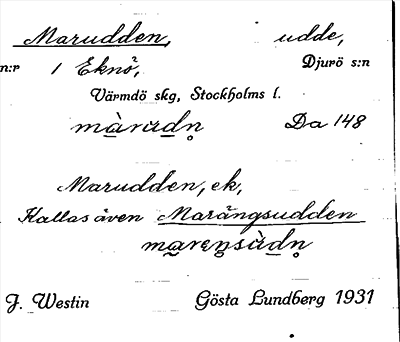 Marudden, udde,
n:r 1 Eknö, Djurö s:n
Värmdö skg, Stockholms l.
màrudn̥ Da 148
Marudden, ek,
Kallas även Marängsudden
mareŋsùdn̥
J. Westin Gösta Lundberg 1931